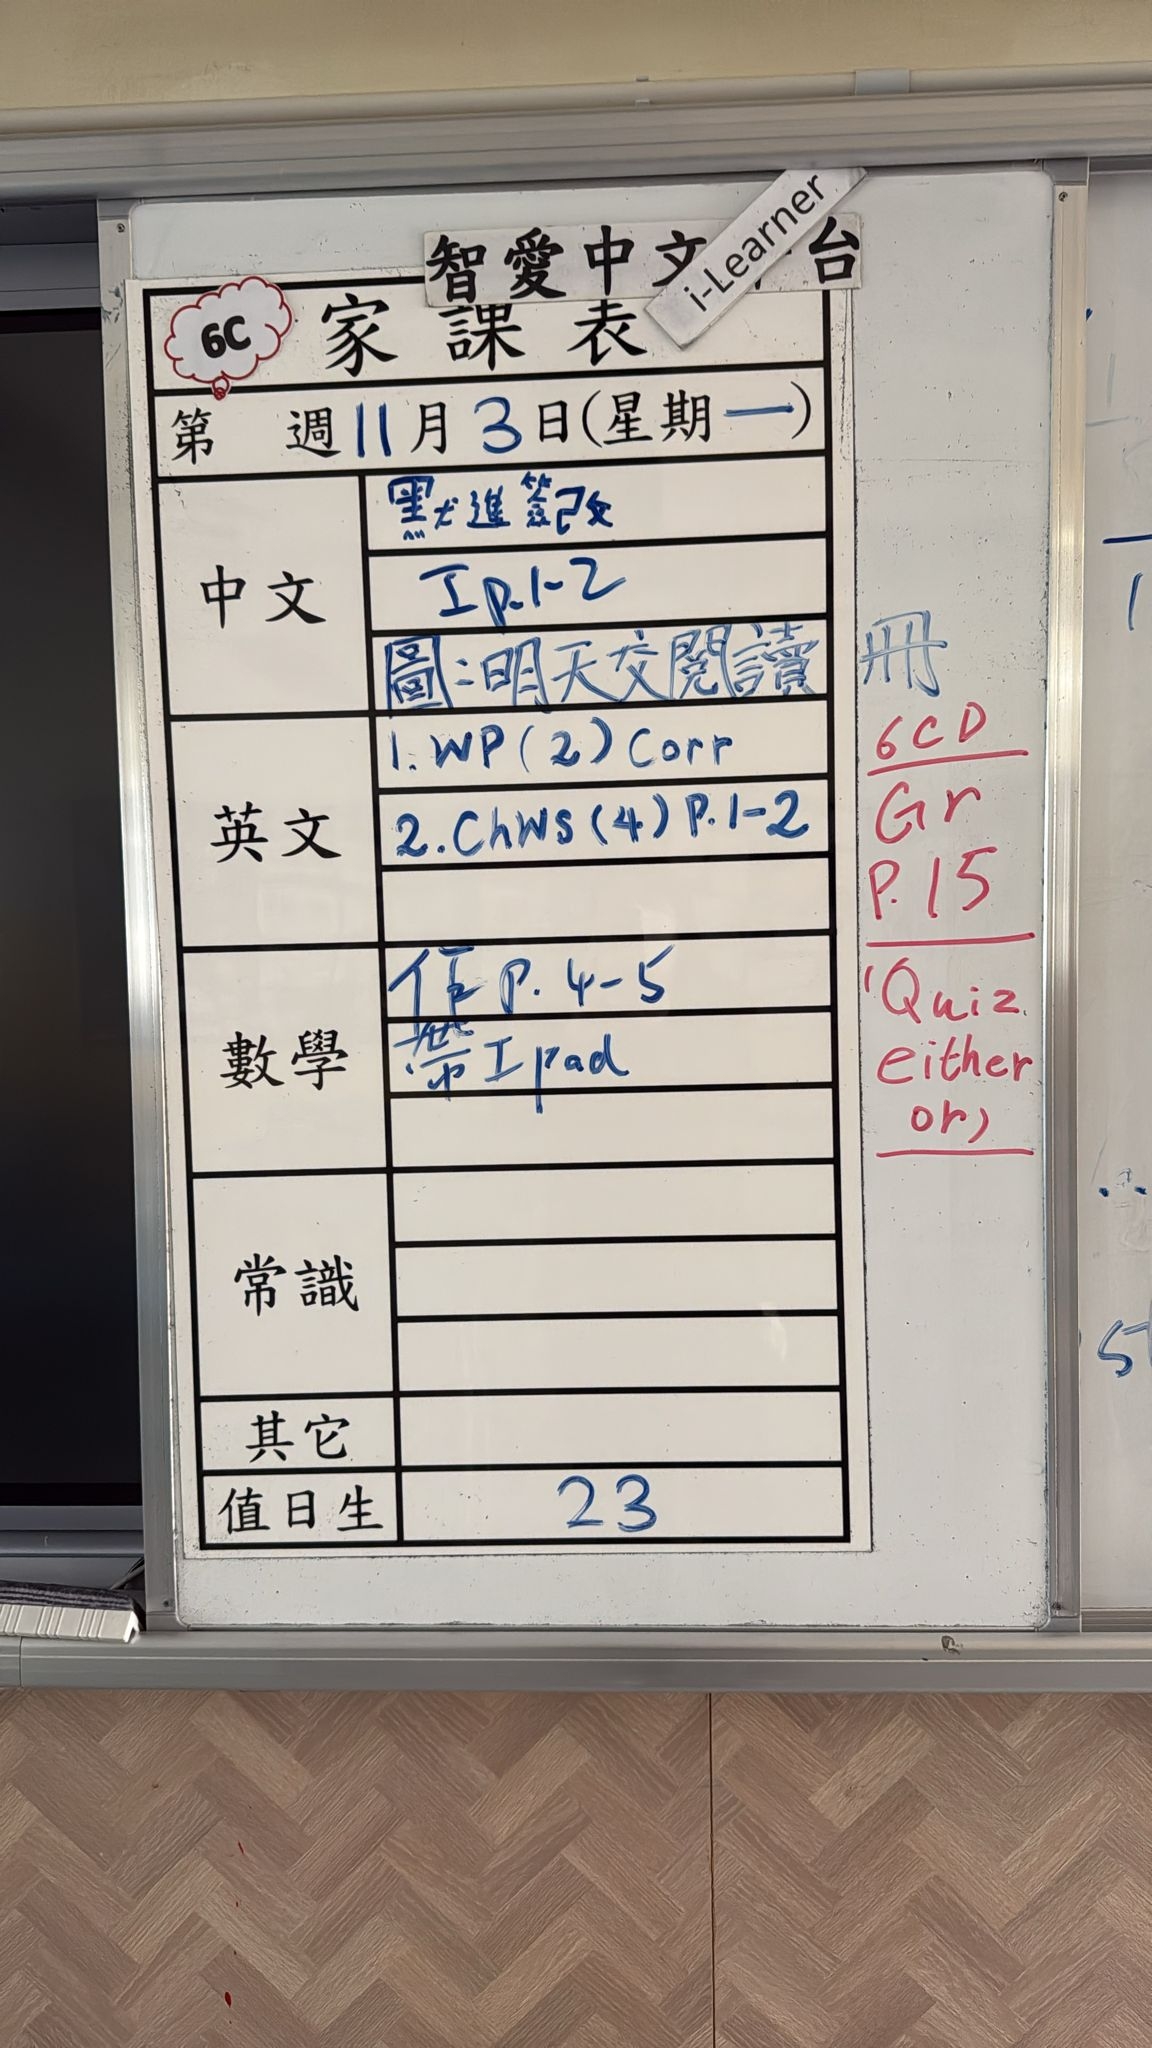 智愛中文 台
i-Learner
6C 家課表
第 週 11月3日(星期一)
中文
默進簽改
工p.1-2
圖:明天交閱讀冊
英文
1. WP(2) Corr
2. ChWS(4) P.1-2
數學
作 P. 4-5
帶Ipad
常識
其它
值日生 23
6CD
Gr
P.15
Quiz
either
or,
1
5